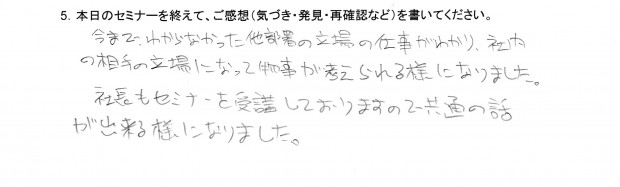 5. 本日のセミナーを終えて、ご感想（気づき・発見・再確認など）を書いてください。
今まで、わからなかった他部署の立場の仕事がわかり、社内
の相手の立場になって物事が考えられる様になりました。
社長もセミナーを受講しておりますので共通の話
が出来る様になりました。